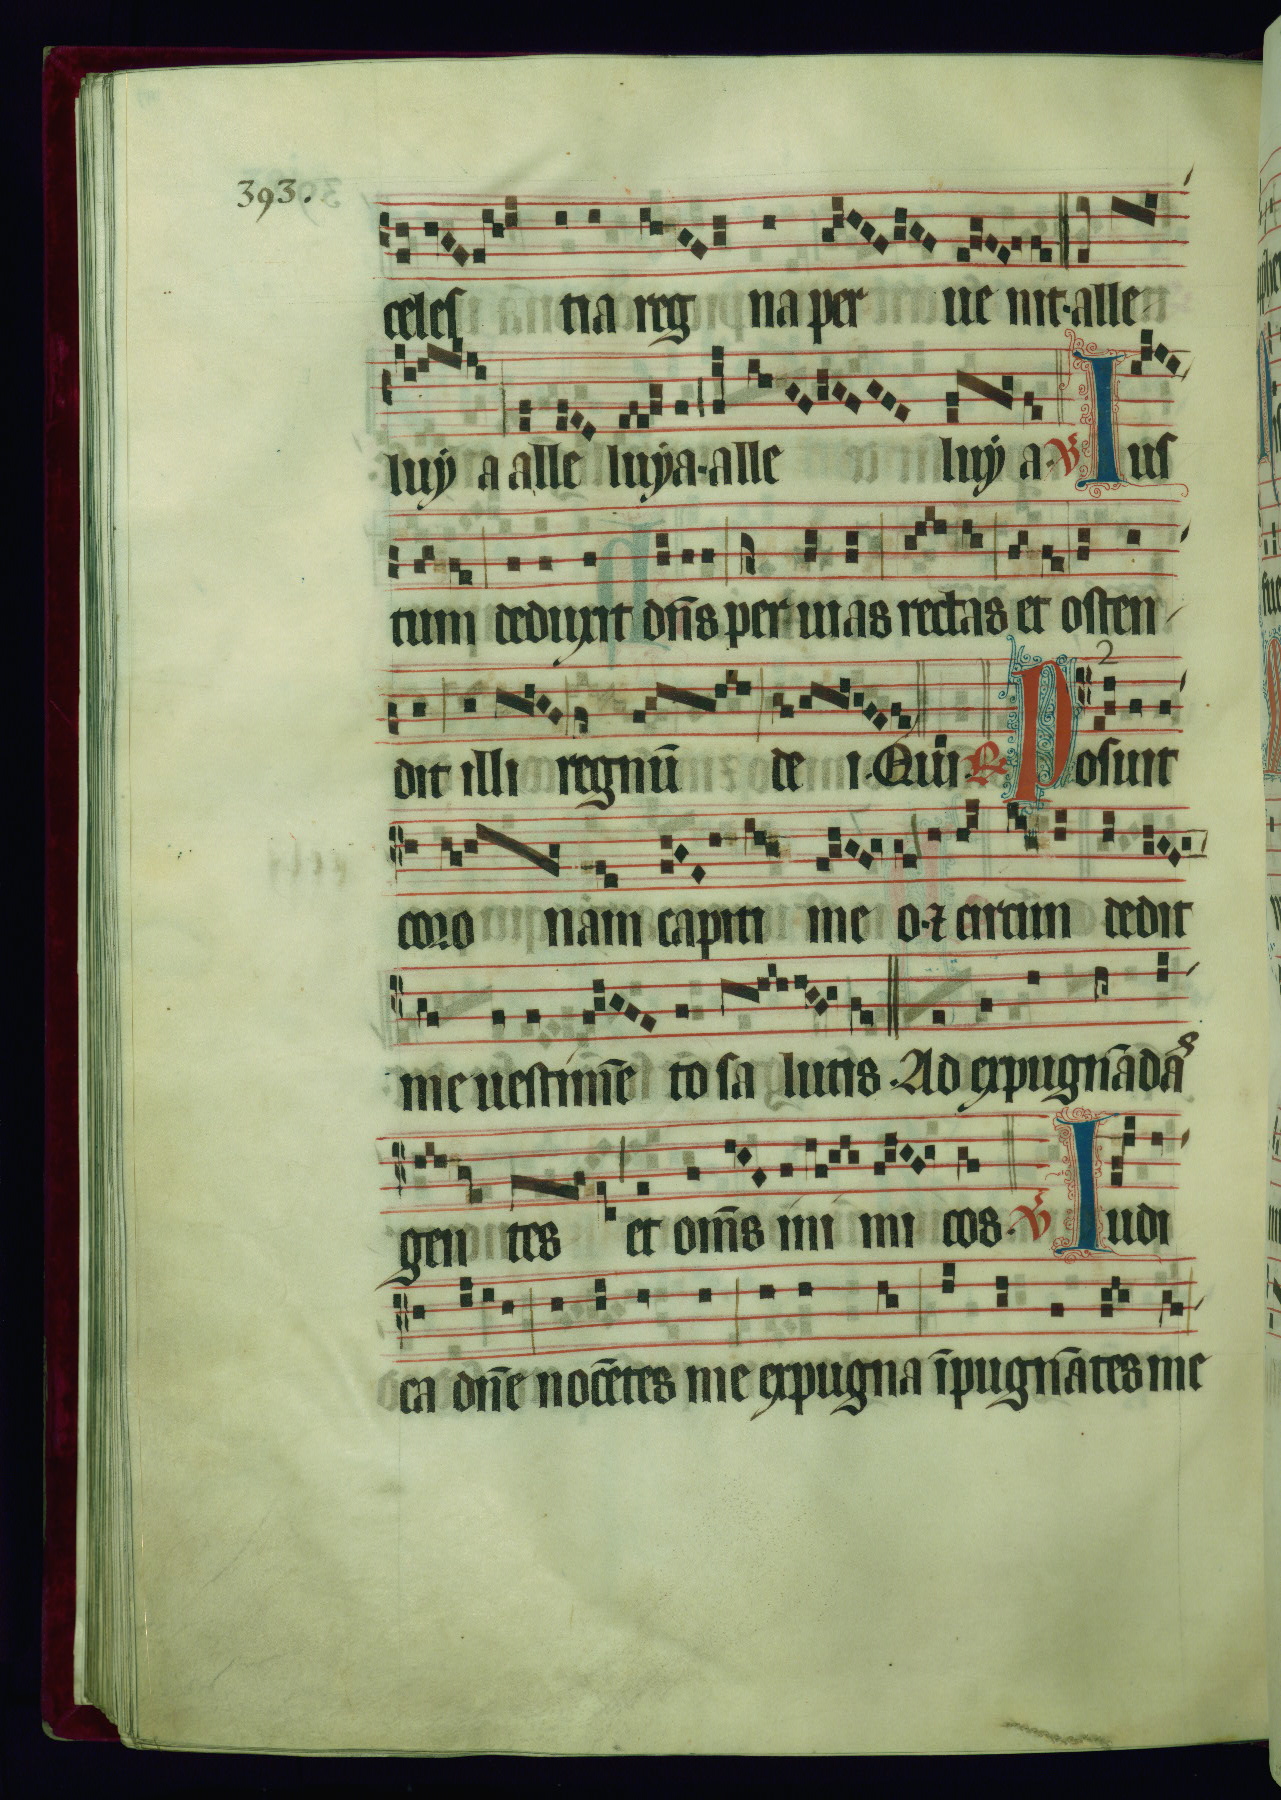 393.
celes tia reg na per ue nit·alle
luÿ a alle luÿa·alle luÿ a· ℣ Ius
tum deduxit dn̄s per uias rectas et osten
dit illi regnū de i·Qui· ℟ Posuit 2
coro nam capiti me o·⁊ circun dedit
me uestimē to sa lutis·Ad expugnādas
gen tes et om̄s ini mi cos· ℣ Iudi
ca dn̄e nocētes me expugna īpugnātes me